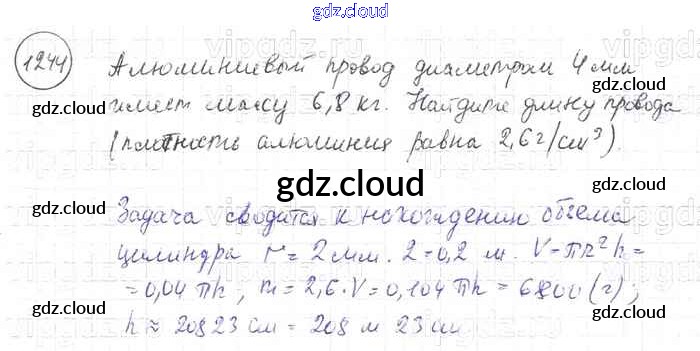 gdz.cloud
1244 Алюминиевый провод диаметром 4 мм
имеет массу 6,8 кг. Найдите длину провода
(плотность алюминия равна 2,6 г/см³).
gdz.cloud
Задача сводится к нахождению объема
цилиндра r = 2 мм. 2 = 0,2 м. V = πR²h =
= 0,04 πh; m = 2,6·V = 0,104 πh = 6800 (г);
h ≈ 20823 см = 208 м 23 см
gdz.cloud
gdz.cloud
gdz.cloud
gdz.cloud
gdz.cloud
gdz.cloud